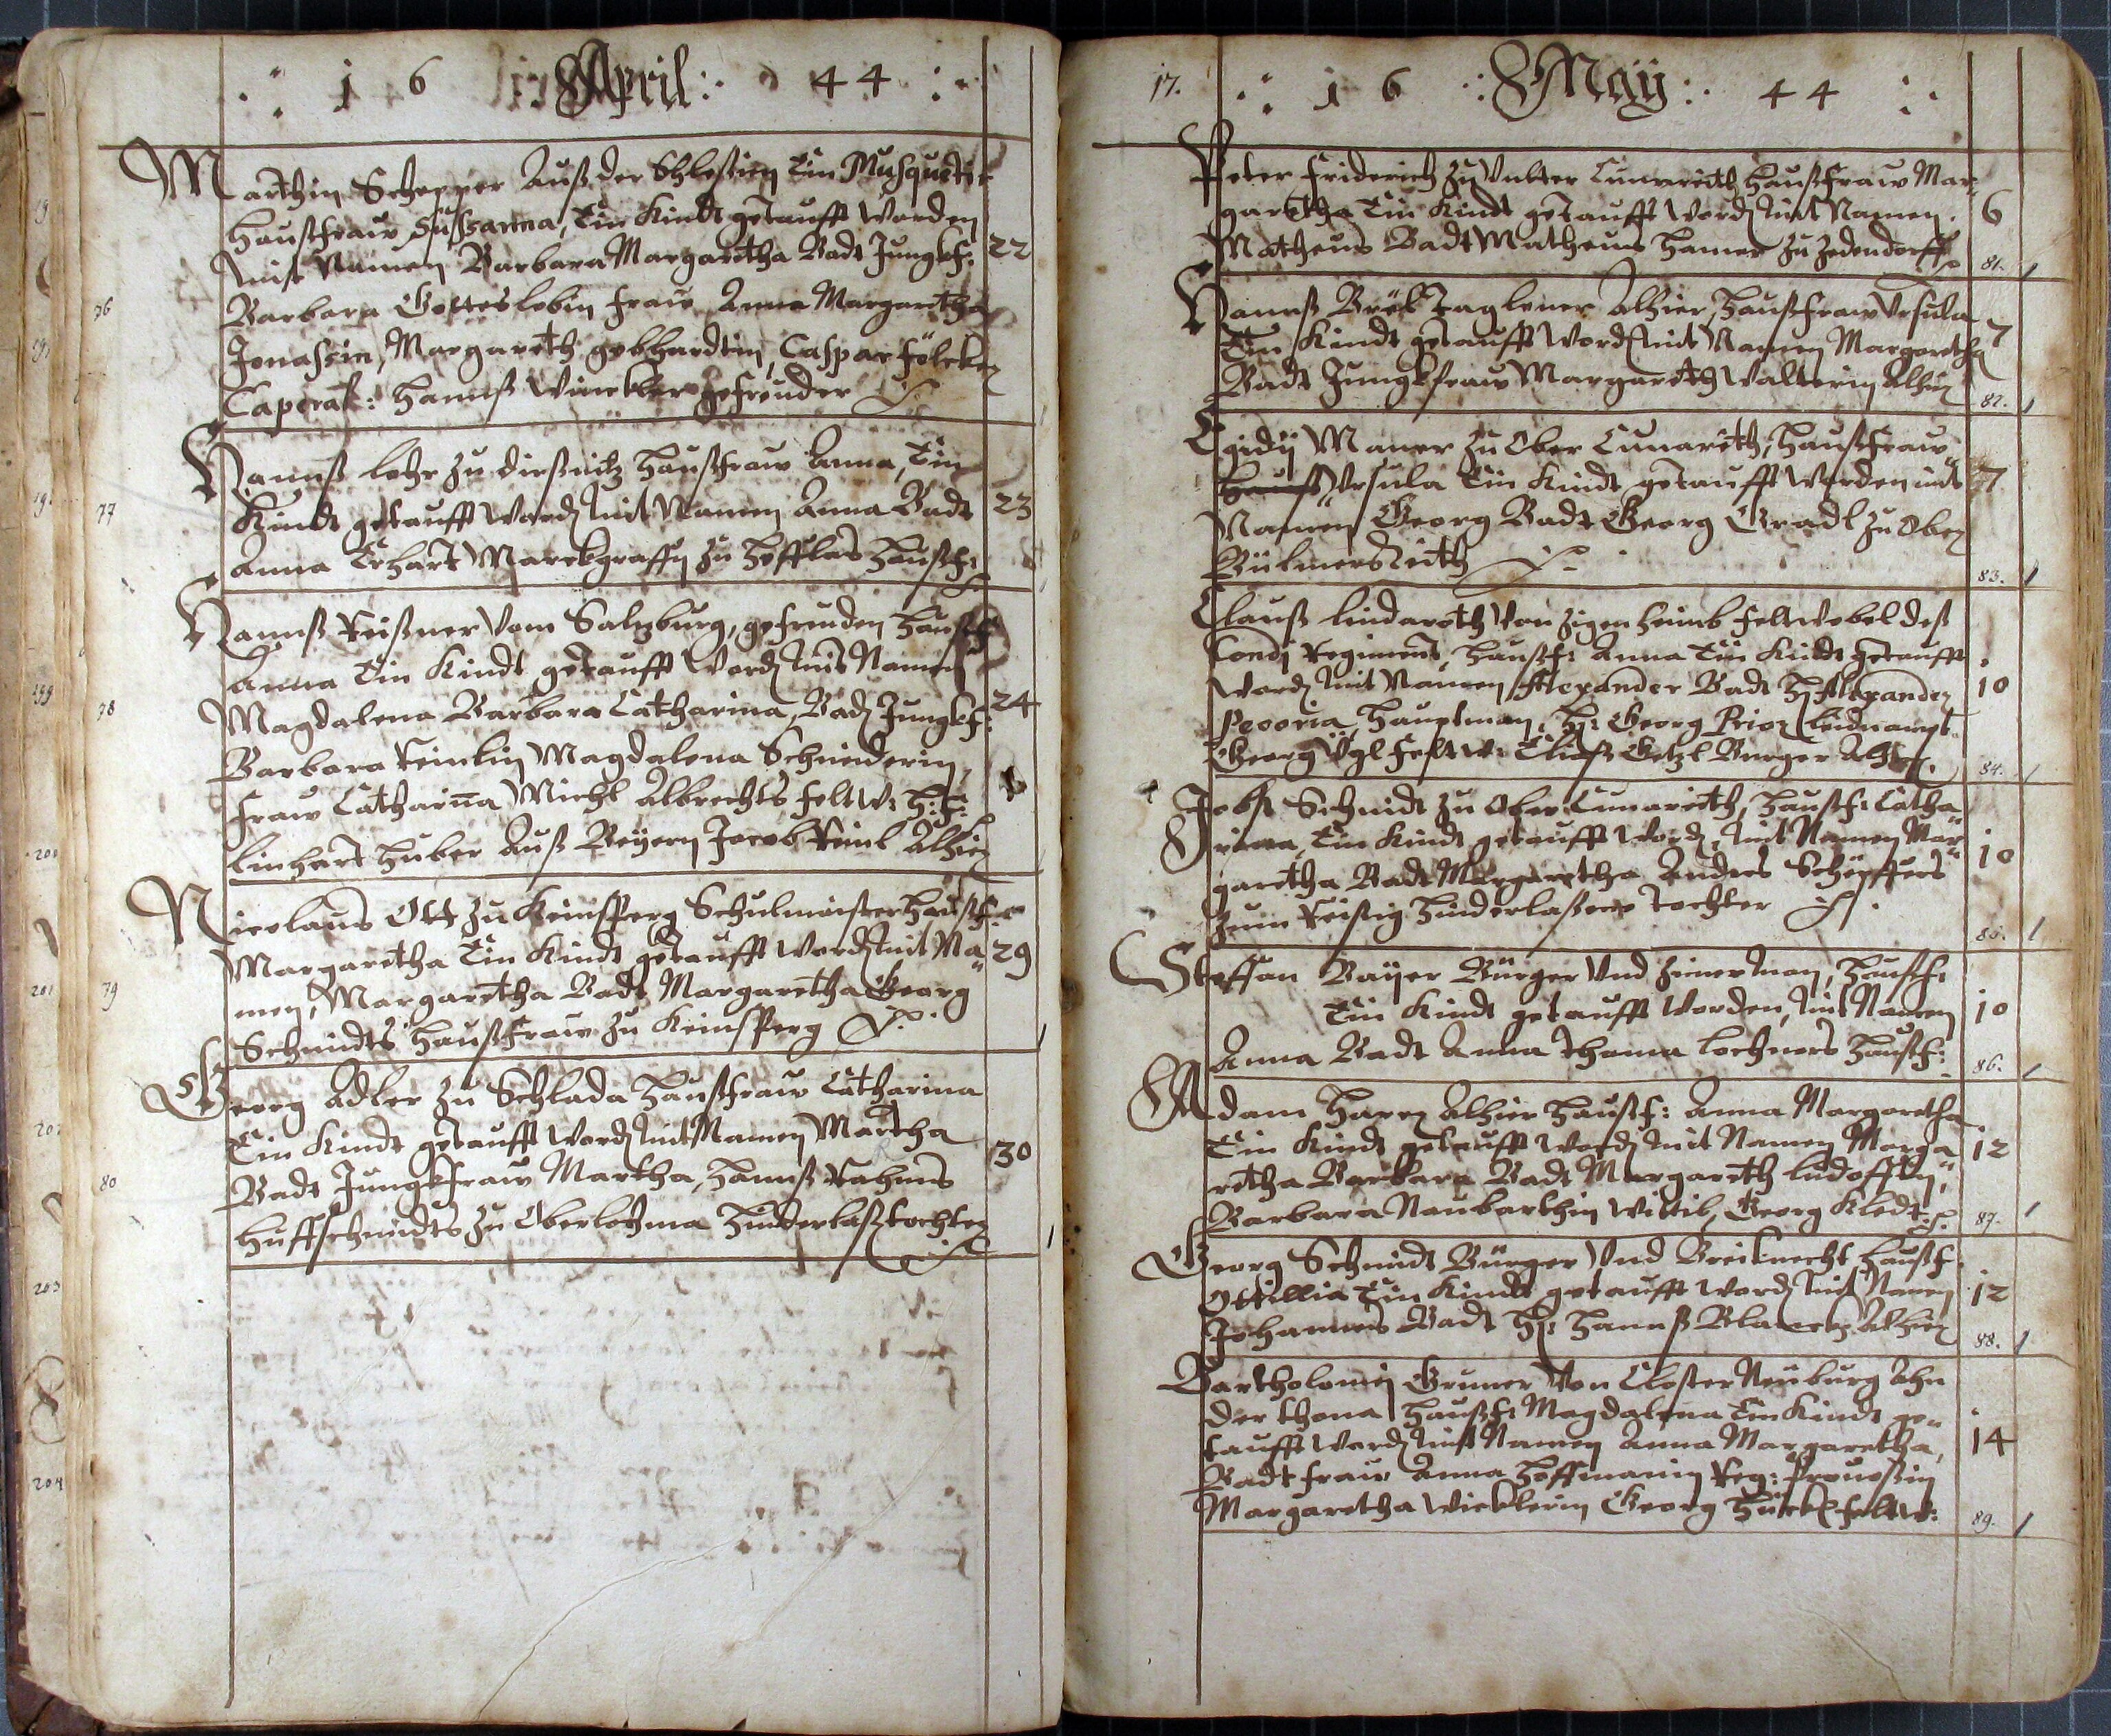 1 6 April: 4 4
Marthin Schepper Auß der Schlesien Ein Musquetir
Haußfraw Sussanna, Ein Kindt getaufft Worden
mitt Namen Barbara Margaretha Badt Jungkf: 22
76 Barbara Gotteslobin fraw Anna Margaretha
Jonassin, Margareth gebhardtin, Caspar
Caporal: Hannß Winckler gefreuder
Hannß lohr zu dirßnitz Haußfraw Anna, Ein
77 Kindt getaufft Word mit Namen Anna Badt 23
Anna Erhart Marckgraffn zu Höfflas Haußf:
Hannß Reißner Vom Saltzburg, gefreuden Haußf
Anna Ein Kindt getaufft Word mit Namen
78 Magdalena Barbara Catharina, Bad Jungkf: 24
Barbara Reinlin Magdalena Schneiderin,
fraw Catharina Michl Albrechts feltw: H:f:
linhart Huber Auß Beyern Jacob Reinl Alhier
Nicolaus Ott zu Kinsperg Schulmeister Haußf:
Margaretha Ein Kindt getaufft Word mit Na= 29
79 men, Margaretha Badt Margaretha Georg
Schmidts Haußfraw zu Kinsperg
Georg Adler zu Schlada Haußfraw Catharina
Ein Kindt getaufft Word mit Namen Martha 30
80 Badt Jungkfraw Martha, Hannß Rahms
Huffschmidts zu Oberlohma Hinderlaß tochter
17. 1 6 May: 4 4
Peter Friderich zu Unter Cunnreith Haußfraw Mar=
garetha Ein Kindt getaufft Word mit Namen. 6
Matheus Badt Matheus Hamer zu Zedendorff 81.
Hannß Taglener Alhier, Haußfraw Ursula
Ein Kindt getaufft Word mit Namen Margaretha 7
Badt Jungkfraw Margareth Walterin Alhir 82.
Egidij Maner zu Ober Cunareith, Haußfraw
Ursula Ein Kindt getaufft Worden mit 7
Namen Georg Badt Georg Gradl zu Ober
83.
Clauß lindaroth Von Zigenheimb feltwebel deß
Condi Regiment, Haußf: Anna Ein Kindt getaufft
Word mit Namen Alexander Badt H: Alexander 10
Hauptman, H: Georg Prior leidnampt
Georg Vgl feltw: Eliaß Getzl Burger Alhier. 84.
Jobst Schmidt zu Ober Cunareith, Haußf: Catha=
rina, Ein Kindt getaufft Word, mit Namen Mar= 10
garetha Badt Margaretha Andres Schöpffers
zum Reissig Hinderlaßene tochter 85.
Steffan Bayer Bürger Und Zimerman, Haußf:
Ein Kindt getaufft Worden, mit Namen 10
Anna Badt Anna Thoma lochners Haußf: 86.
Adam Harrer Alhier Haußf: Anna Margaretha
Ein Kindt getaufft Word mit Namen Marga= 12
retha Barbara Badt Margareth
Barbara Naubarthin Wittib, Georg 87.
Georg Schmidt Bürger Und Breiknecht Haußf
Ottillia Ein Kindt getaufft Word mit Namen 12
Johannes Badt H: Hannß Alhier 88.
Bartholomej Gruner Von Closter Neuburg Ahn
der thona, Haußf: Magdalena Ein Kindt ge=
taufft Word mit Namen Anna Margaretha, 14
Badt fraw Anna Hoffmanin Reg: Provosin
Margaretha Wicklerin Georg feltw: 89.